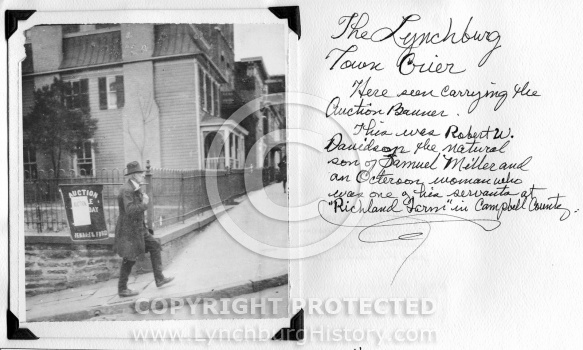 The Lynchburg
Town Crier
Here seen carrying the
Auction Banner.
This was Robert W.
Davidson the natural
son of Samuel Miller and
an Octoroon woman who
was one of his servants at
"Richland Farm" in Campbell County.
AUCTION
COPYRIGHT PROTECTED
www.LynchburgHistory.com